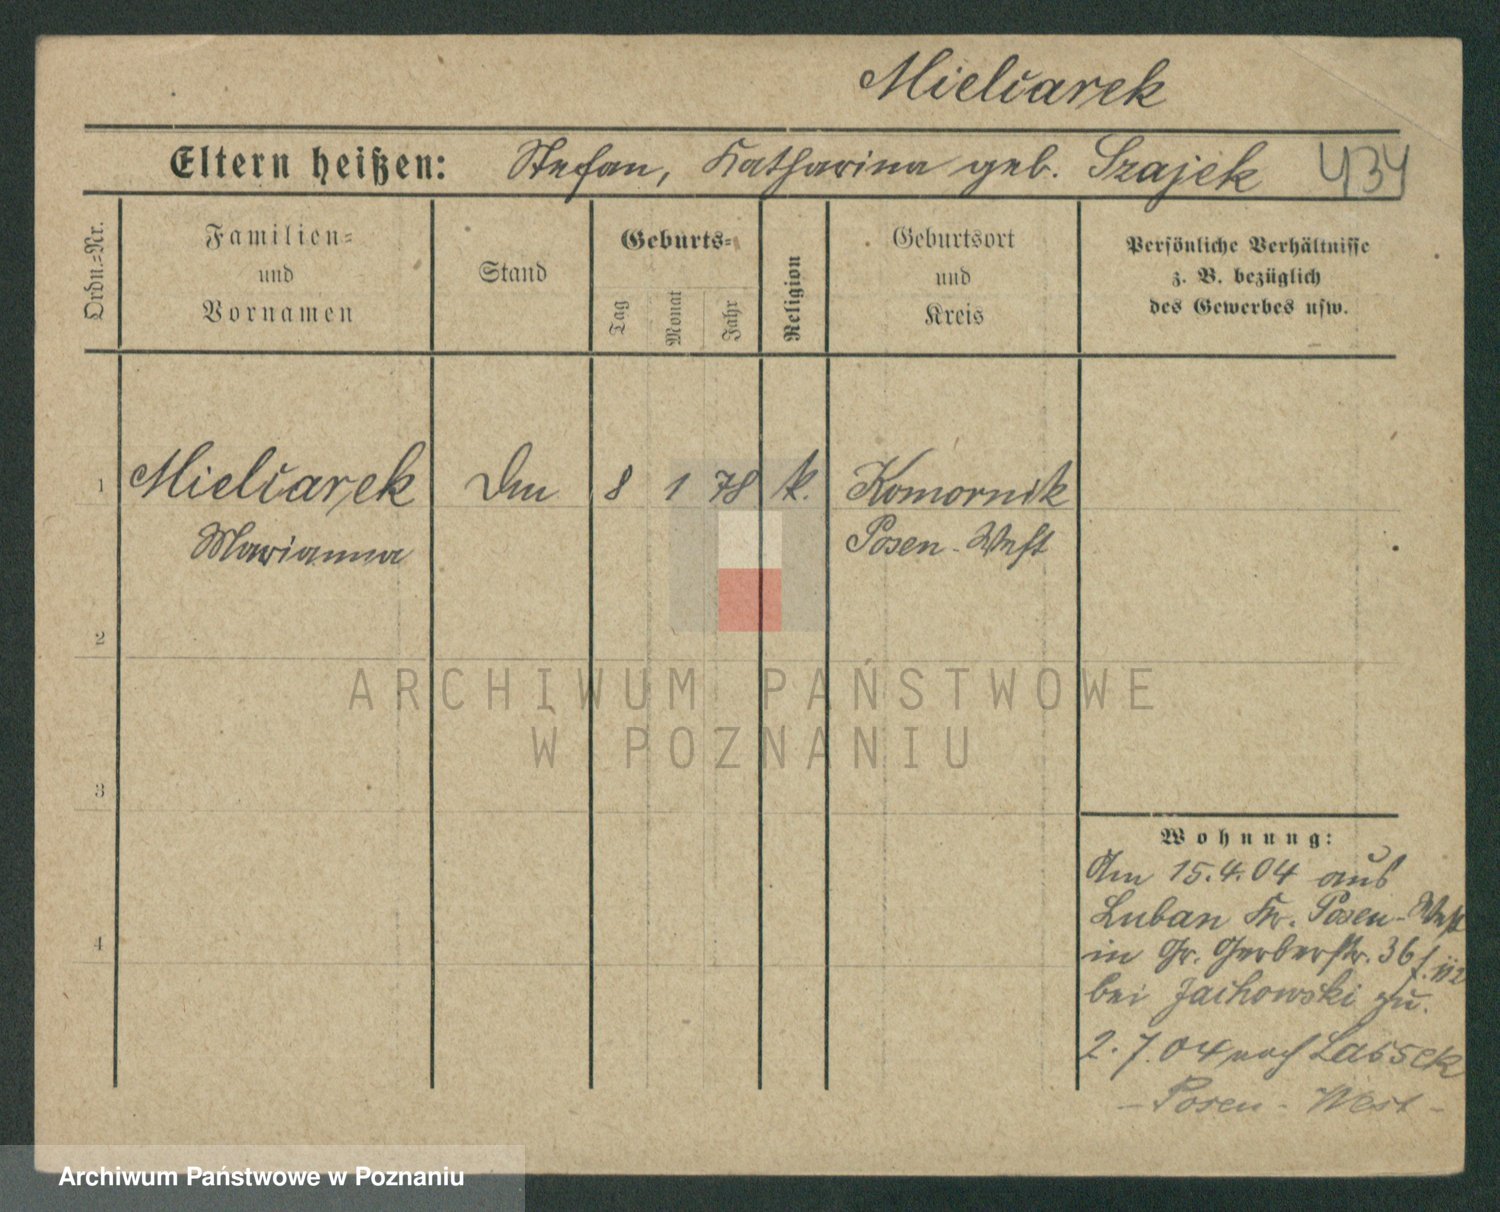 Mielcarek
Eltern heißen: Stefan, Katharina geb. Szajek 434
Ordn.-Nr.
Familien-
und
Vornamen
Stand
Geburts-
Tag
Monat
Jahr
Religion
Geburtsort
und
Kreis
Persönliche Verhältnisse
z. B. bezüglich
des Gewerbes usw.
1 Mielcarek 8 1 78 k. Komornik
Marianna Posen-West
2
3
4
Wohnung:
Am 15.4.04 aus
Luban Kr. Posen-West
in Gr. Gerberstr. 36
bei Jachowski zu.
2.7.04 nach Lassek
- Posen - West -
ARCHIWUM PAŃSTWOWE
W POZNANIU
Archiwum Państwowe w Poznaniu